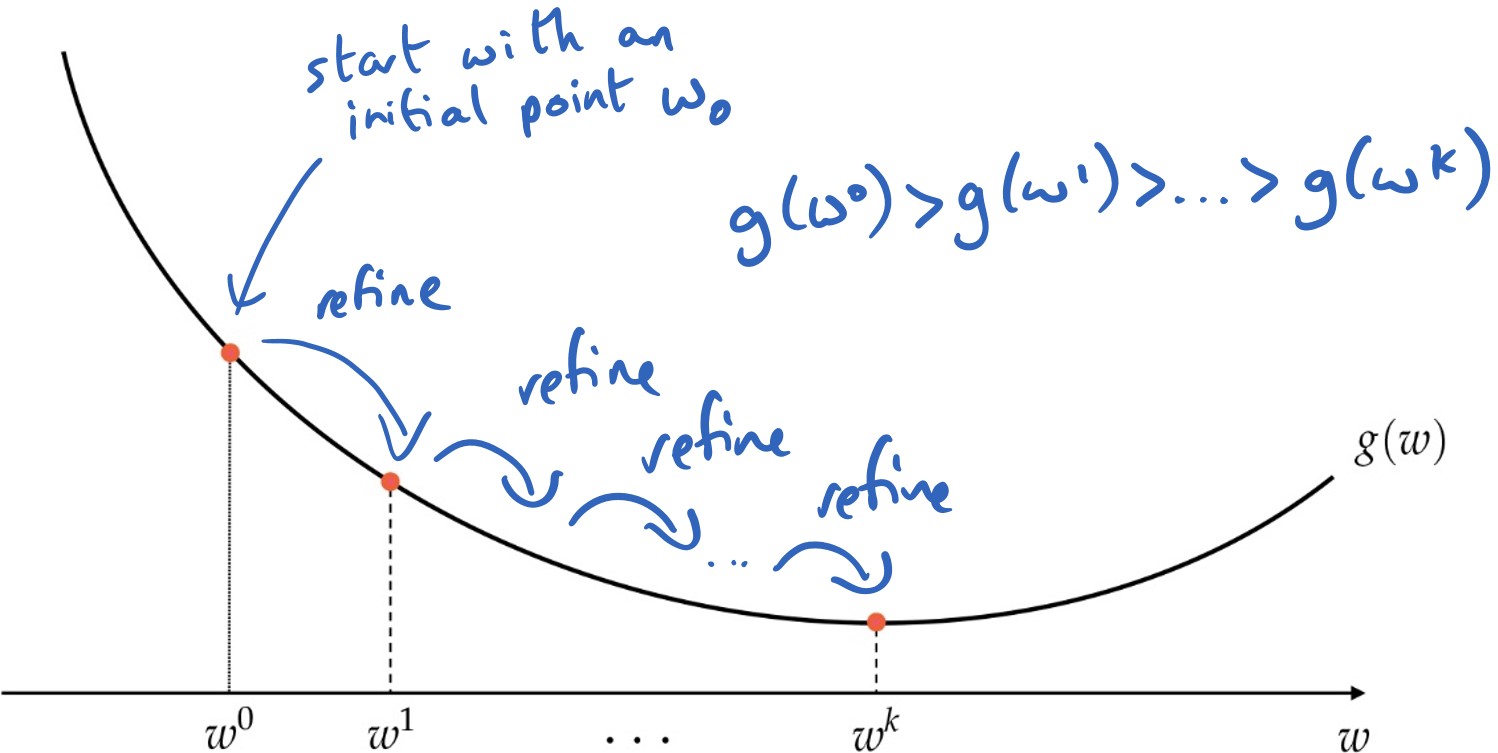 start with an
initial point w₀
g(w⁰) > g(w¹) > ... > g(wᵏ)
refine
refine
refine
refine
...
g(w)
w⁰ w¹ ... wᵏ w